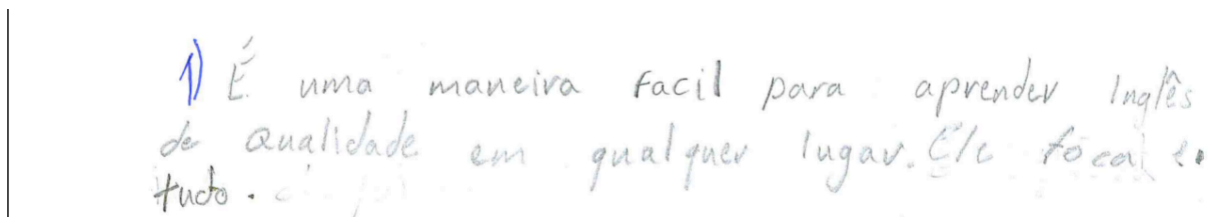 1) É uma maneira facil para aprender Inglês
de Qualidade em qualquer lugar. Ele foca e
tudo.